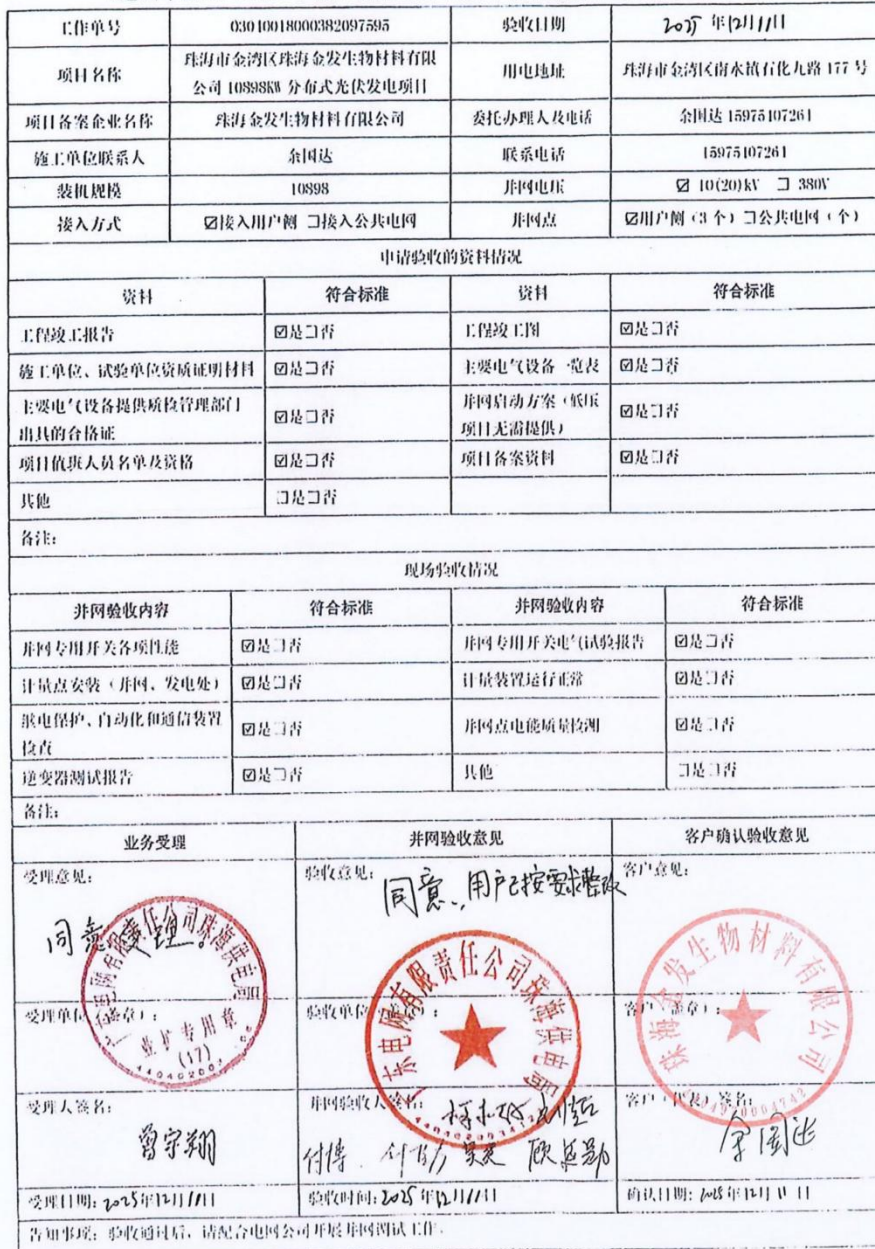 工作单号 03010018000382097595 验收日期 2025年12月11日
项目名称 珠海市金湾区珠海金发生物材料有限
公司10898KW分布式光伏发电项目 用电地址 珠海市金湾区南水镇石化九路177号
项目备案企业名称 珠海金发生物材料有限公司 委托办理人及电话 余国达 15975107261
施工单位联系人 余国达 联系电话 15975107261
装机规模 10898 并网电压 ☑ 10(20)kV □ 380V
接入方式 ☑接入用户侧 □接入公共电网 并网点 ☑用户侧（3个）□公共电网（个）
申请验收的资料情况
资料 符合标准 资料 符合标准
工程竣工报告 ☑是□否 工程竣工图 ☑是□否
施工单位、试验单位资质证明材料 ☑是□否 主要电气设备一览表 ☑是□否
主要电气设备提供质检管理部门
出具的合格证 ☑是□否 并网启动方案（低压
项目无需提供） ☑是□否
项目值班人员名单及资格 ☑是□否 项目备案资料 ☑是□否
其他 □是□否
备注：
现场验收情况
并网验收内容 符合标准 并网验收内容 符合标准
并网专用开关各项性能 ☑是□否 并网专用开关电气试验报告 ☑是□否
计量点安装（并网、发电处） ☑是□否 计量装置运行正常 ☑是□否
继电保护、自动化和通信装置
检查 ☑是□否 并网点电能质量检测 ☑是□否
逆变器测试报告 ☑是□否 其他 □是□否
备注：
业务受理 并网验收意见 客户确认验收意见
受理意见： 验收意见： 客户意见：
同意受理。
同意，用户已按要求整改
广东电网有限责任公司珠海供电局
业扩专用章
(17)
广东电网有限责任公司珠海供电局
珠海金发生物材料有限公司
受理单位（盖章）： 验收单位（盖章）： 客户（盖章）：
受理人签名： 并网验收人签名： 客户（代表）签名：
曾宇翔
付博 顾延勋
余国达
受理日期：2025年12月11日 验收时间：2025年12月11日 确认日期：2025年12月11日
告知事项：验收通过后，请配合电网公司开展并网调试工作。